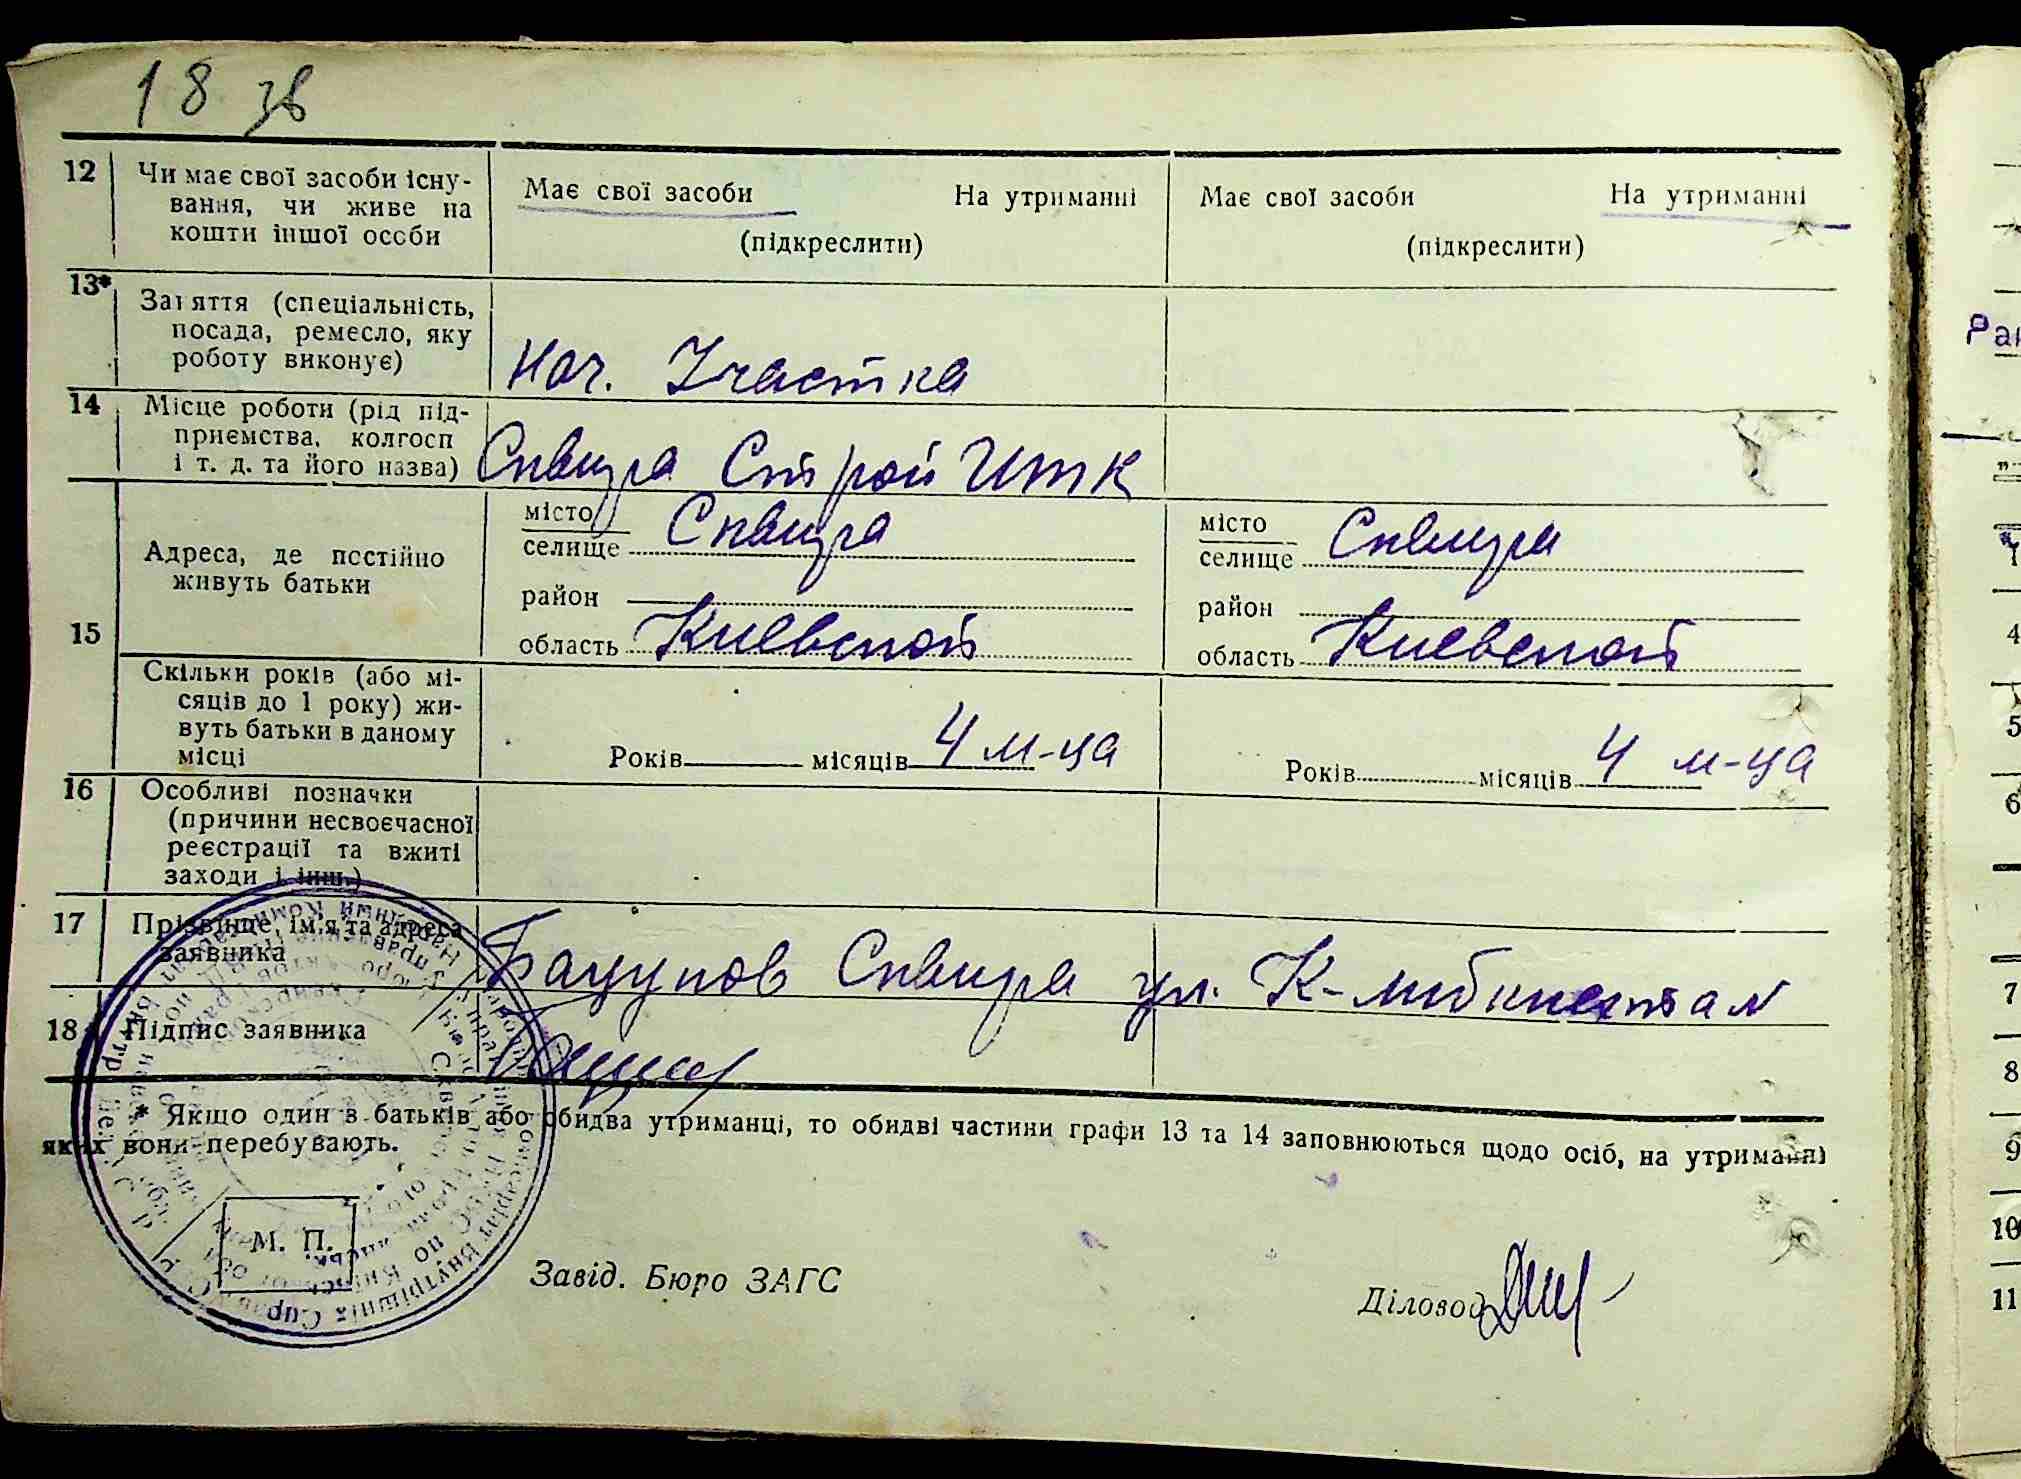 18 зв
12 Чи має свої засоби існу-
вання, чи живе на
кошти іншої особи
Має свої засоби На утриманні
(підкреслити)
Має свої засоби На утриманні
(підкреслити)
13* Заняття (спеціальність,
посада, ремесло, яку
роботу виконує)
Нач. Участка
14 Місце роботи (рід під-
приємства, колгосп
і т. д. та його назва)
Сквира Строй ИТК
15 Адреса, де постійно
живуть батьки
місто
селище Сквира
район
область Киевской
місто
селище Сквира
район
область Киевской
Скільки років (або мі-
сяців до 1 року) жи-
вуть батьки в даному
місці
Років місяців 4 м-ца
Років місяців 4 м-ца
16 Особливі позначки
(причини несвоєчасної
реєстрації та вжиті
заходи і інш.)
17 Прізвище, ім'я та адреса
заявника
Сквира ул. К-Либкнехта
18 Підпис заявника
* Якщо один з батьків або обидва утриманці, то обидві частини графи 13 та 14 заповнюються щодо осіб, на утриманні
яких вони перебувають.
М. П.
Завід. Бюро ЗАГС
Діловод
4
5
6
7
8
9
10
11